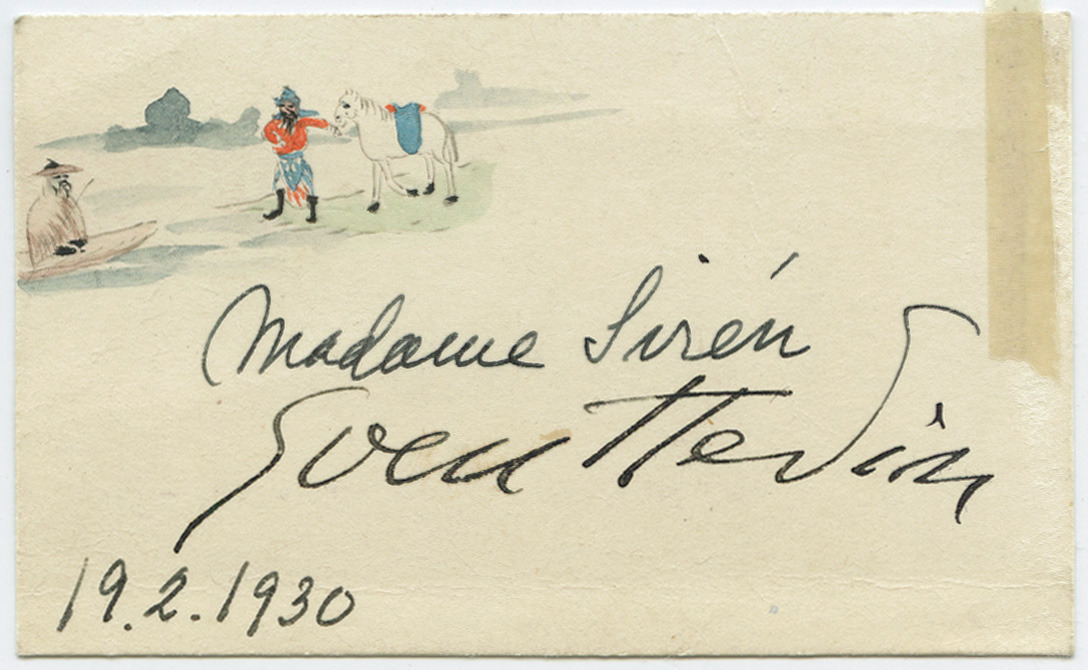 Madame Sirén
Sven Hedin
19.2.1930